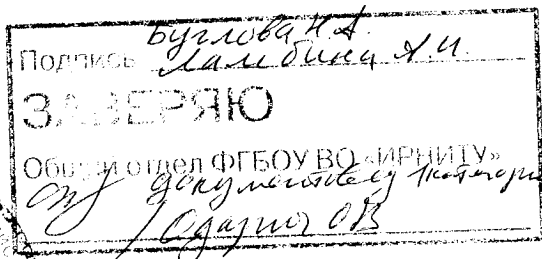 Буглова Н.А.
Подпись Ламбина Л.И.
ЗАВЕРЯЮ
Общий отдел ФГБОУ ВО «ИРНИТУ»
документовед 1 категории
/ ОВ